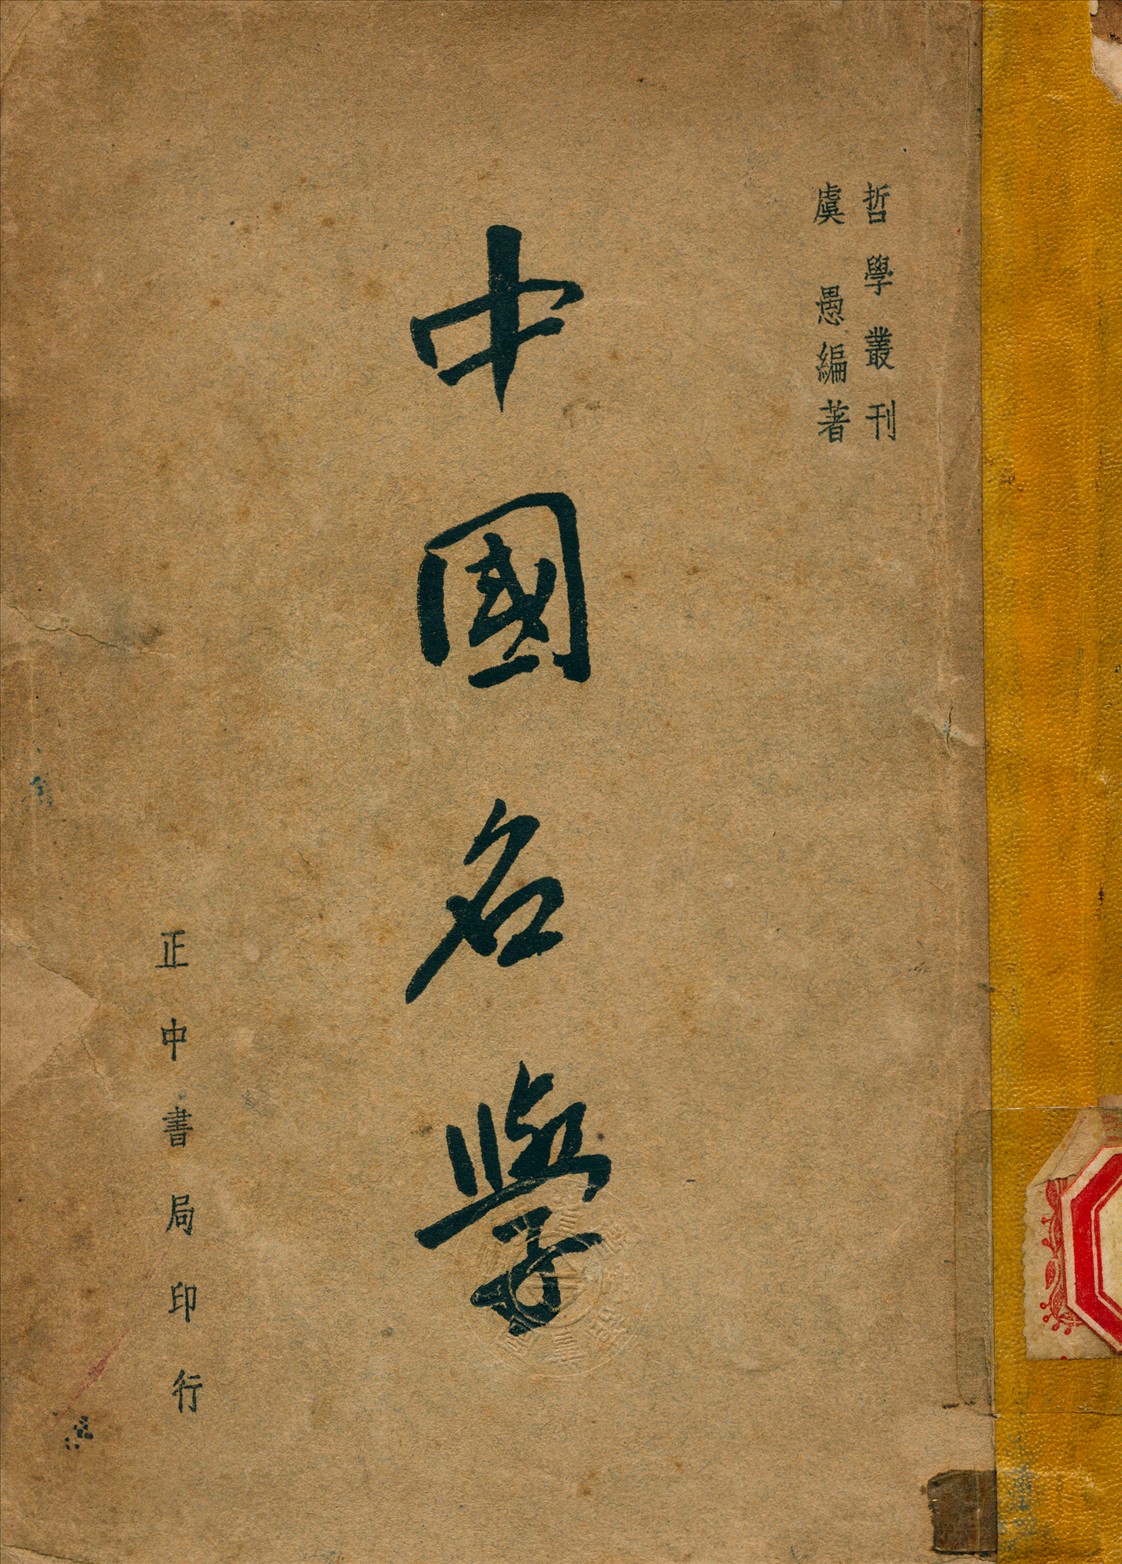 哲學叢刊
虞愚編著
中國名學
正中書局印行